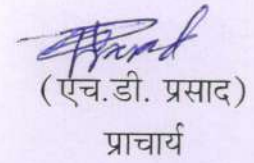 (एच.डी. प्रसाद)
प्राचार्य